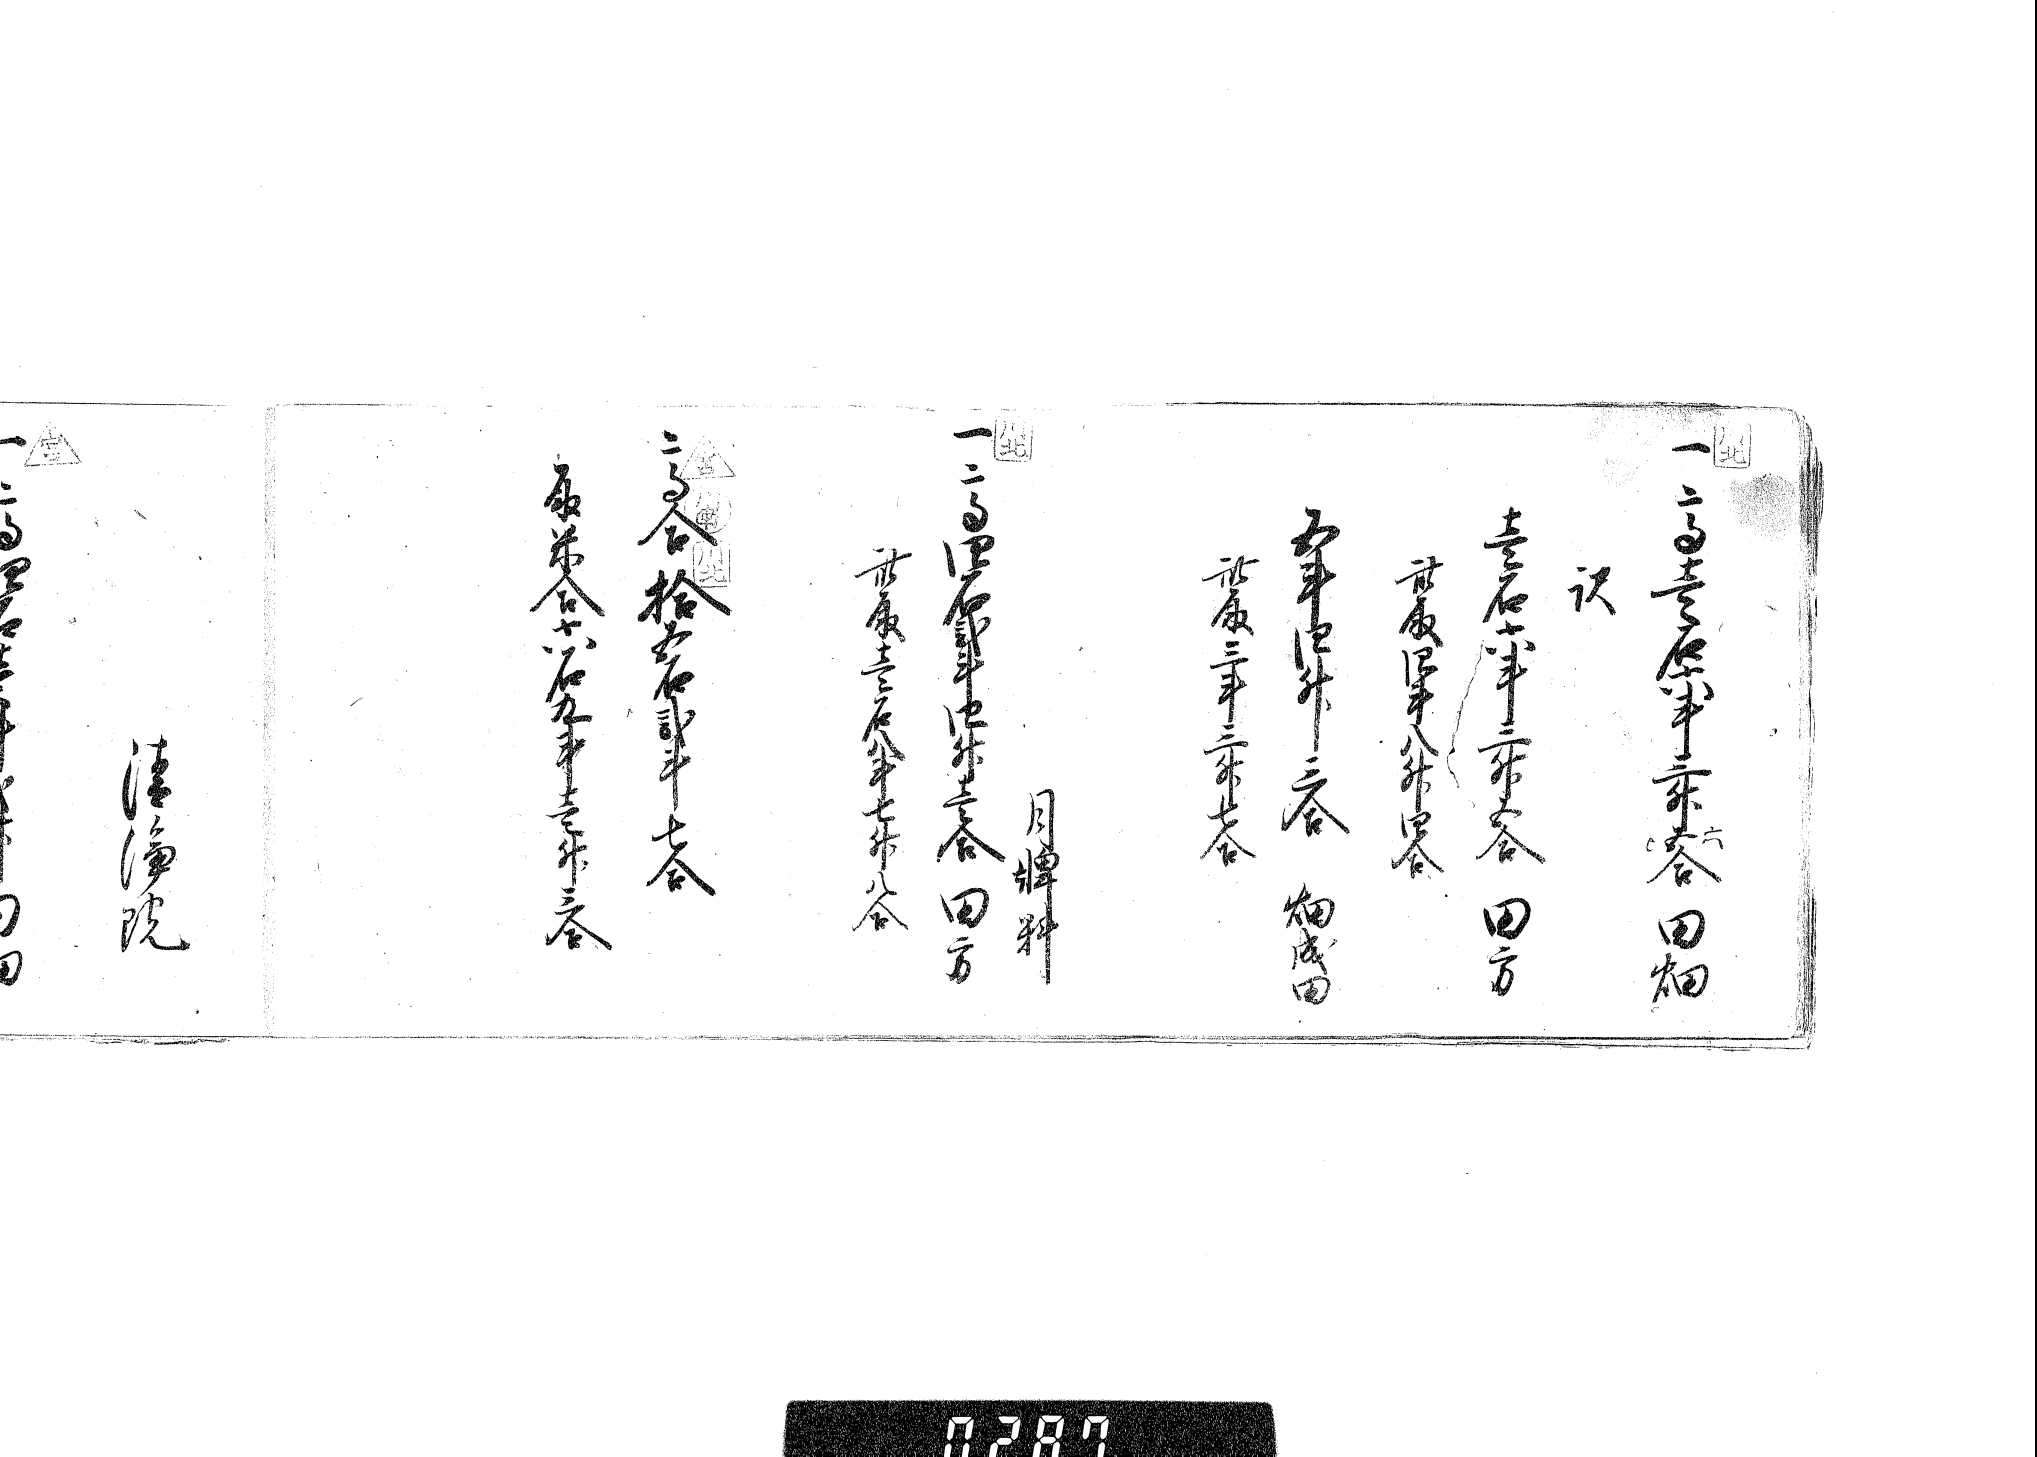 一 高壱石六斗三升五合 田畑
六
北
訳
壱石六斗三升五合 田方
此取四斗八升四合
五斗四升三合 畑成田
此取三斗三升七合
月牌料
一 高四石弐斗四升壱合 田方
北
此取壱石八斗七升八合
高合拾五石弐斗七合
宮
南
北
取米合六石九斗壱升三合
清浄院
宮